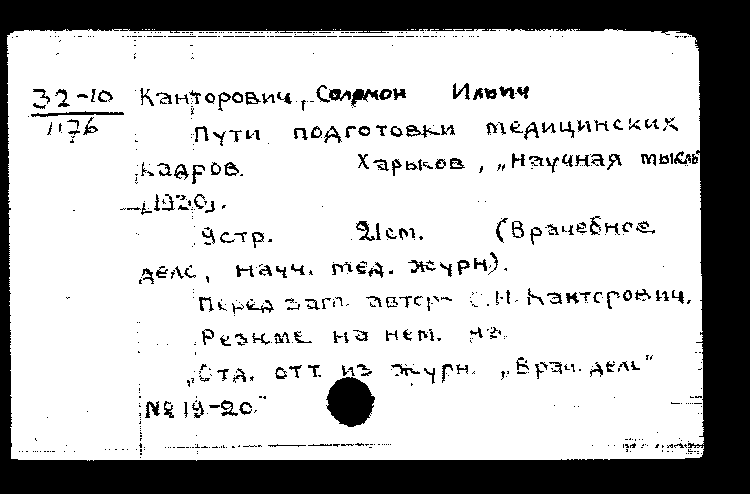 32-10
1176
Канторович, Соломон Ильич
Пути подготовки медицинских
кадров. Харьков, „Научная мысль
[1930].
9 стр. 21 см. (Врачебное
дело, научн. мед. журн).
Перед загл. автор- С.И. Канторович.
Резюме на нем. яз.
„Отд. отт. из журн. „Врач. дело"
№ 19-20."